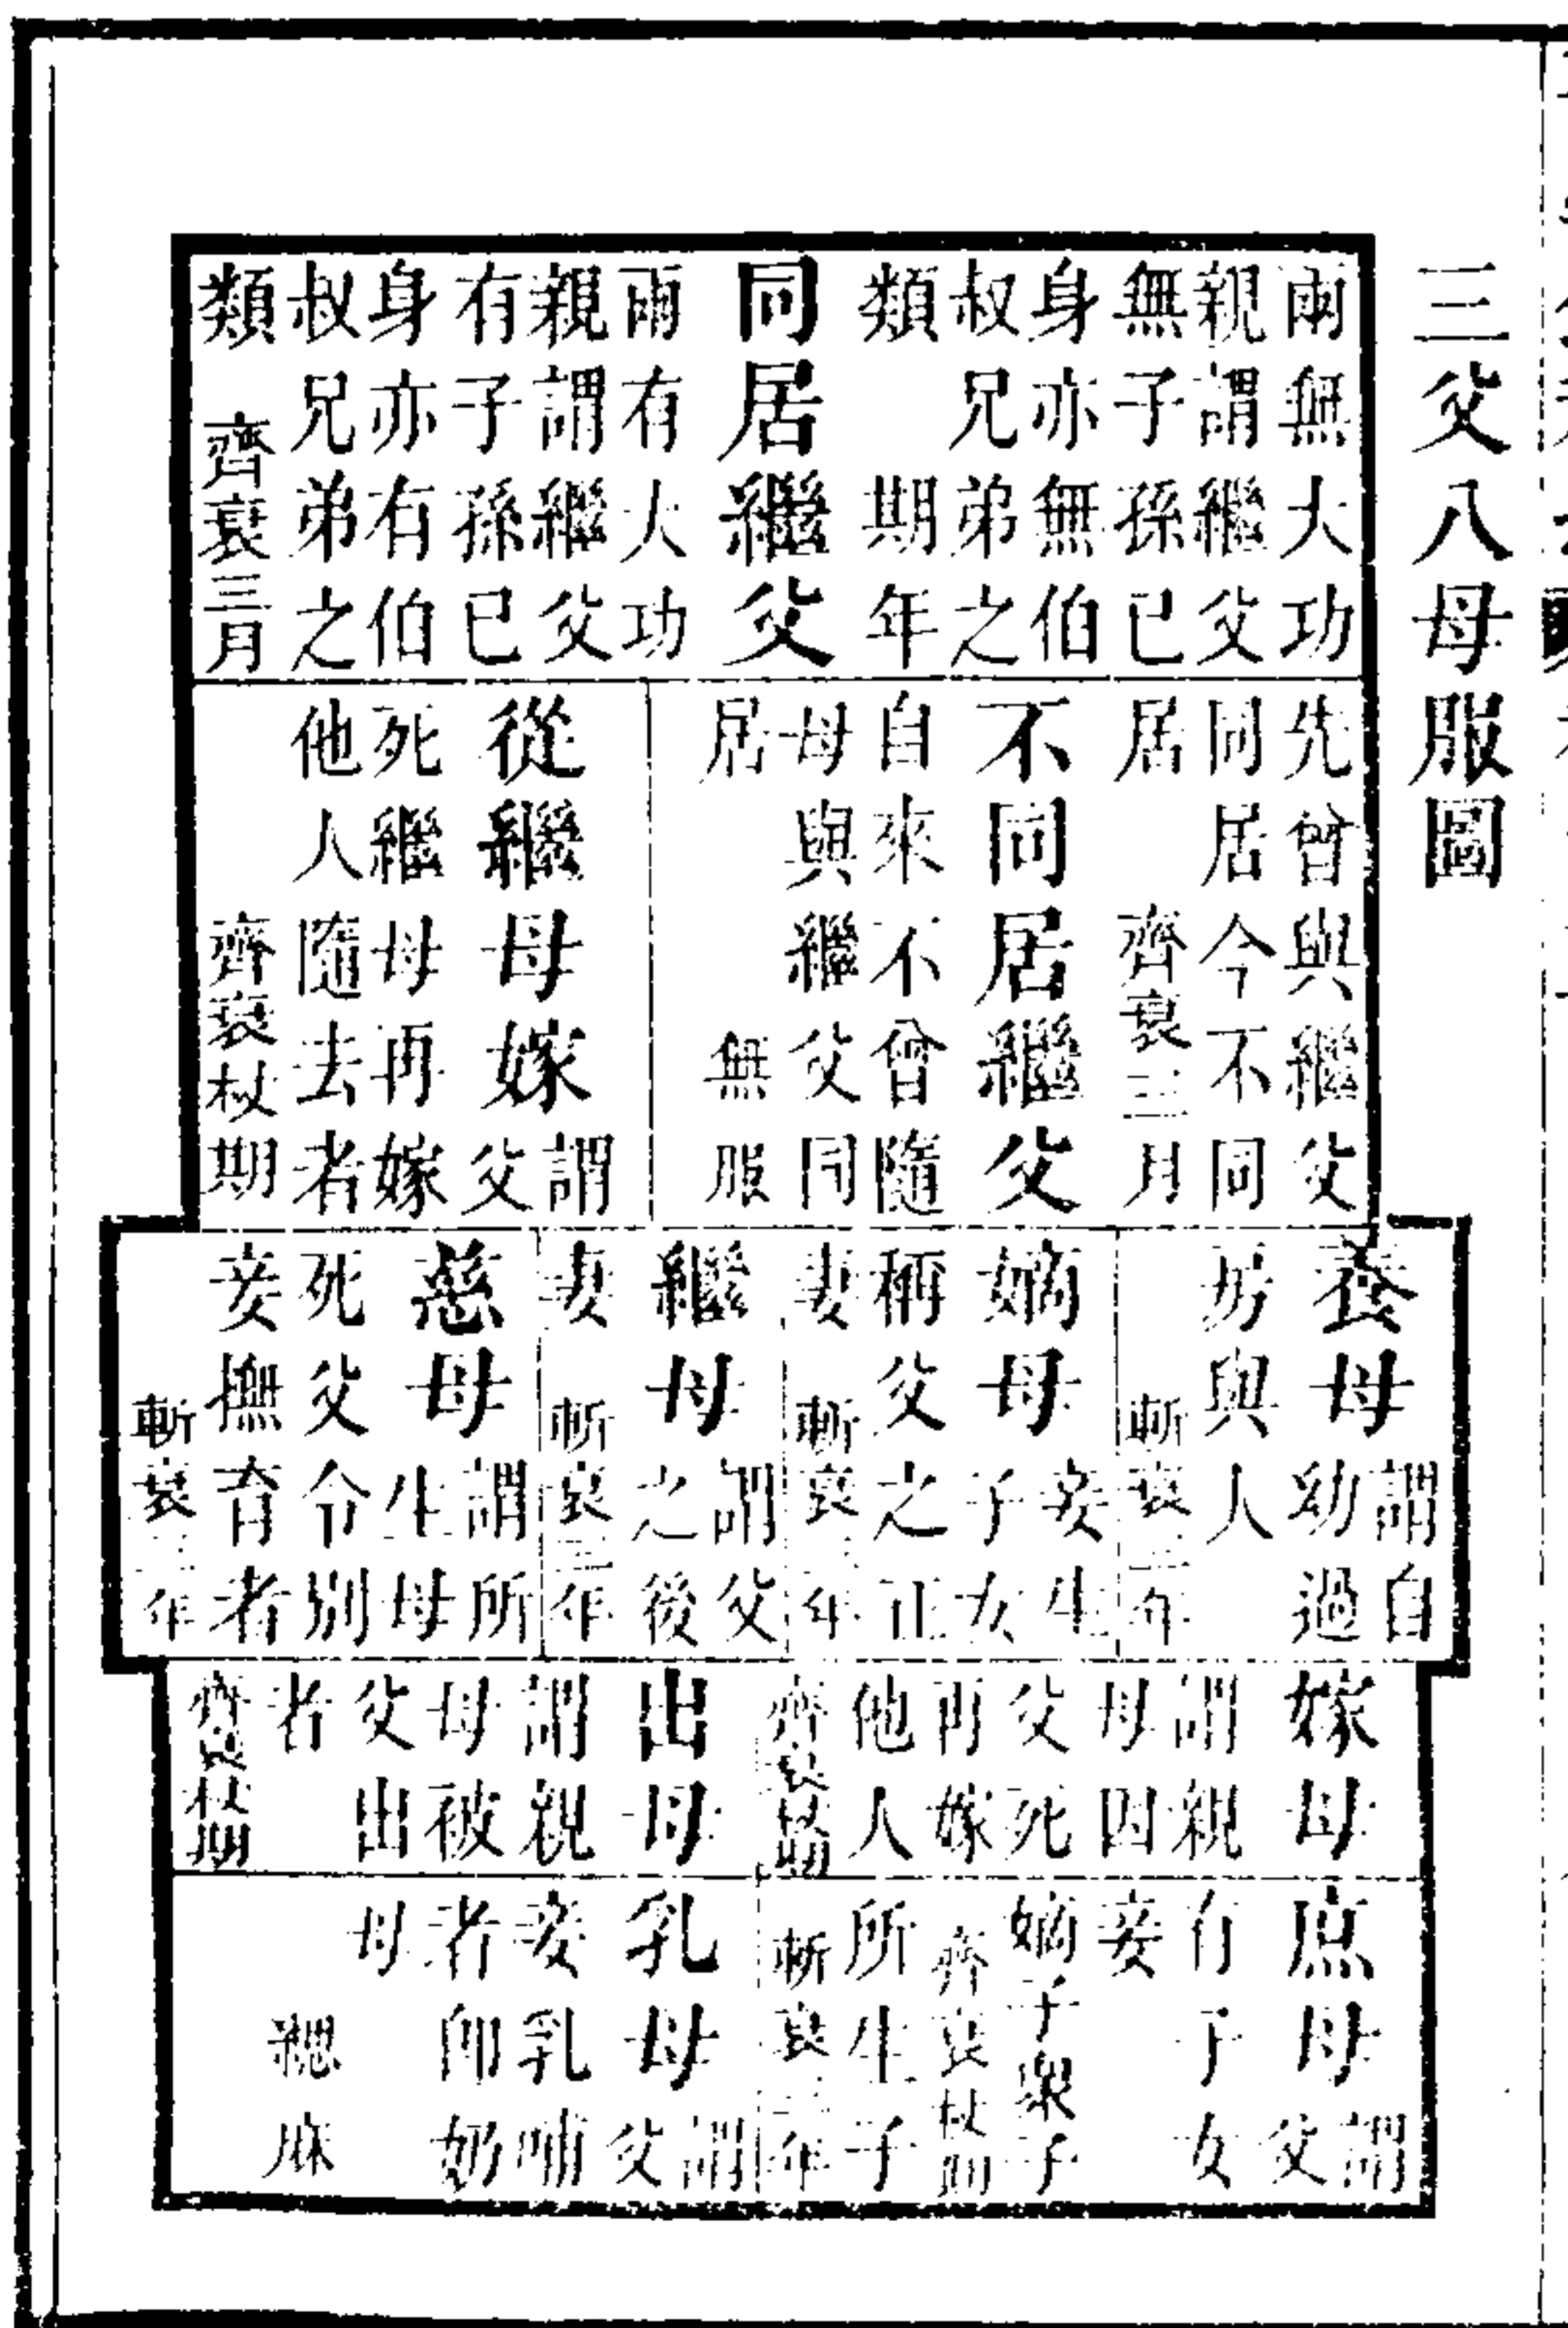 三父八母服圖
兩無大功
親謂繼父
無子孫已
身亦無伯
叔兄弟之
類 期年
同居繼父
兩有大功
親謂繼父
有子孫已
身亦有伯
叔兄弟之
類 齊衰三月
先曾與繼父
同居今不同
居 齊衰三月
不同居繼父
自來不曾隨
母與繼父同
居 無服
從繼母嫁謂父
死繼母再嫁
他人隨去者
齊衰杖期
養母謂自幼過
房與人
斬衰三年
嫡母妾生子女
稱父之正
妻 斬衰三年
繼母謂父之後
妻 斬衰三年
慈母謂所生母
死父令別
妾撫育者
斬衰三年
嫁母
謂親
母因
父死
再嫁
他人
齊衰杖期
出母
謂親
母被
父出
者
齊衰杖期
庶母謂父
有子女
妾
嫡子眾子
齊衰杖期
所生子
斬衰三年
乳母謂父
妾乳哺
者即奶
母
緦麻